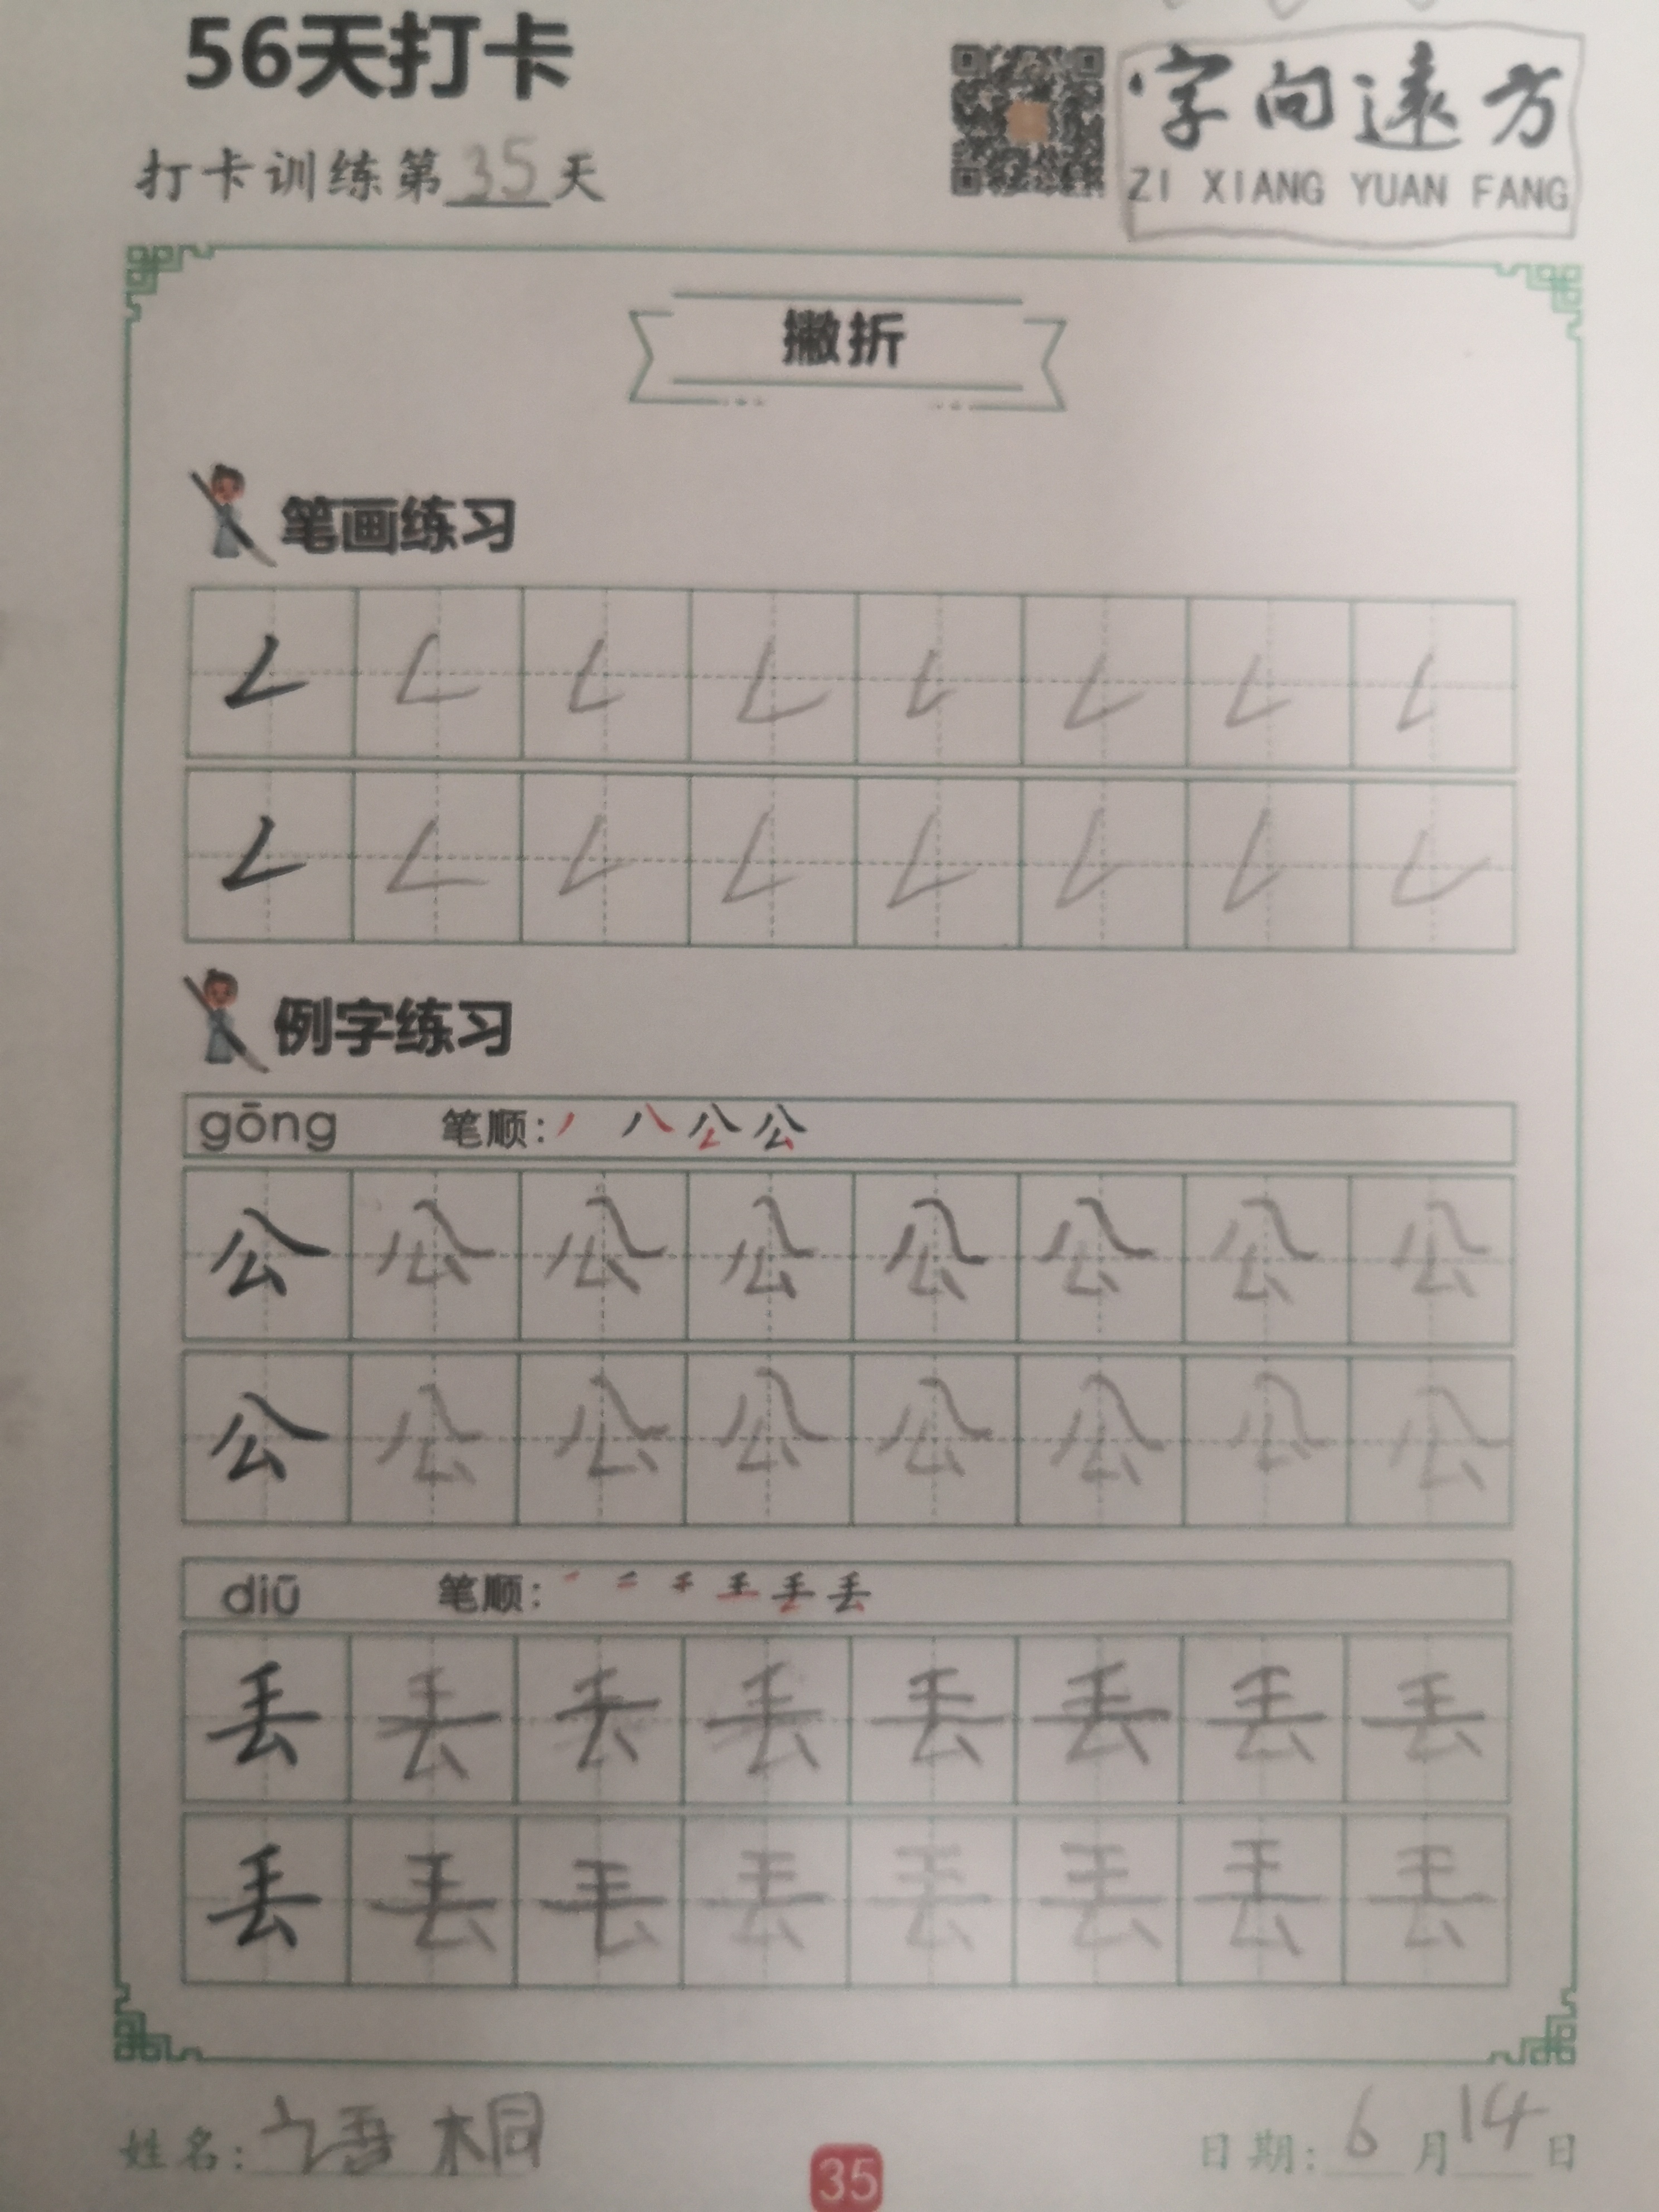 56天打卡
字向遠方
打卡训练第35天
ZI XIANG YUAN FANG
撇折
笔画练习
𠃋 𠃋 𠃋 𠃋 𠃋 𠃋 𠃋 𠃋
𠃋 𠃋 𠃋 𠃋 𠃋 𠃋 𠃋 𠃋
例字练习
gōng 笔顺: 丿 八 公 公
公 公 公 公 公 公 公 公
公 公 公 公 公 公 公 公
diū 笔顺: 丢
丢 丢 丢 丢 丢 丢 丢 丢
丢 丢 丢 丢 丢 丢 丢 丢
姓名: 语桐
日期: 6月14日
35